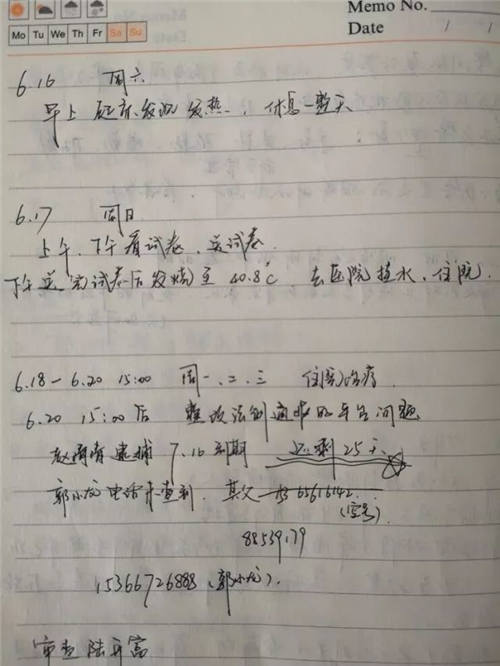 Memo No.
Date / /
Mo Tu We Th Fr Sa Su
6.16 周六
早上起床发现发热，休息一整天
6.17 周日
上午、下午看试卷、送试卷
下午送完试卷后发烧至40.8℃ 去医院挂水、住院.
6.18－6.20 15:00 周一、二、三 住院治疗.
6.20 15:00后 整改法制通报的平台问题
逮捕 7.16到期 还剩25天
郭小龙电话未查到. 其父
(空号)
88539179
15366726888 (郭小龙).
审查陆开富